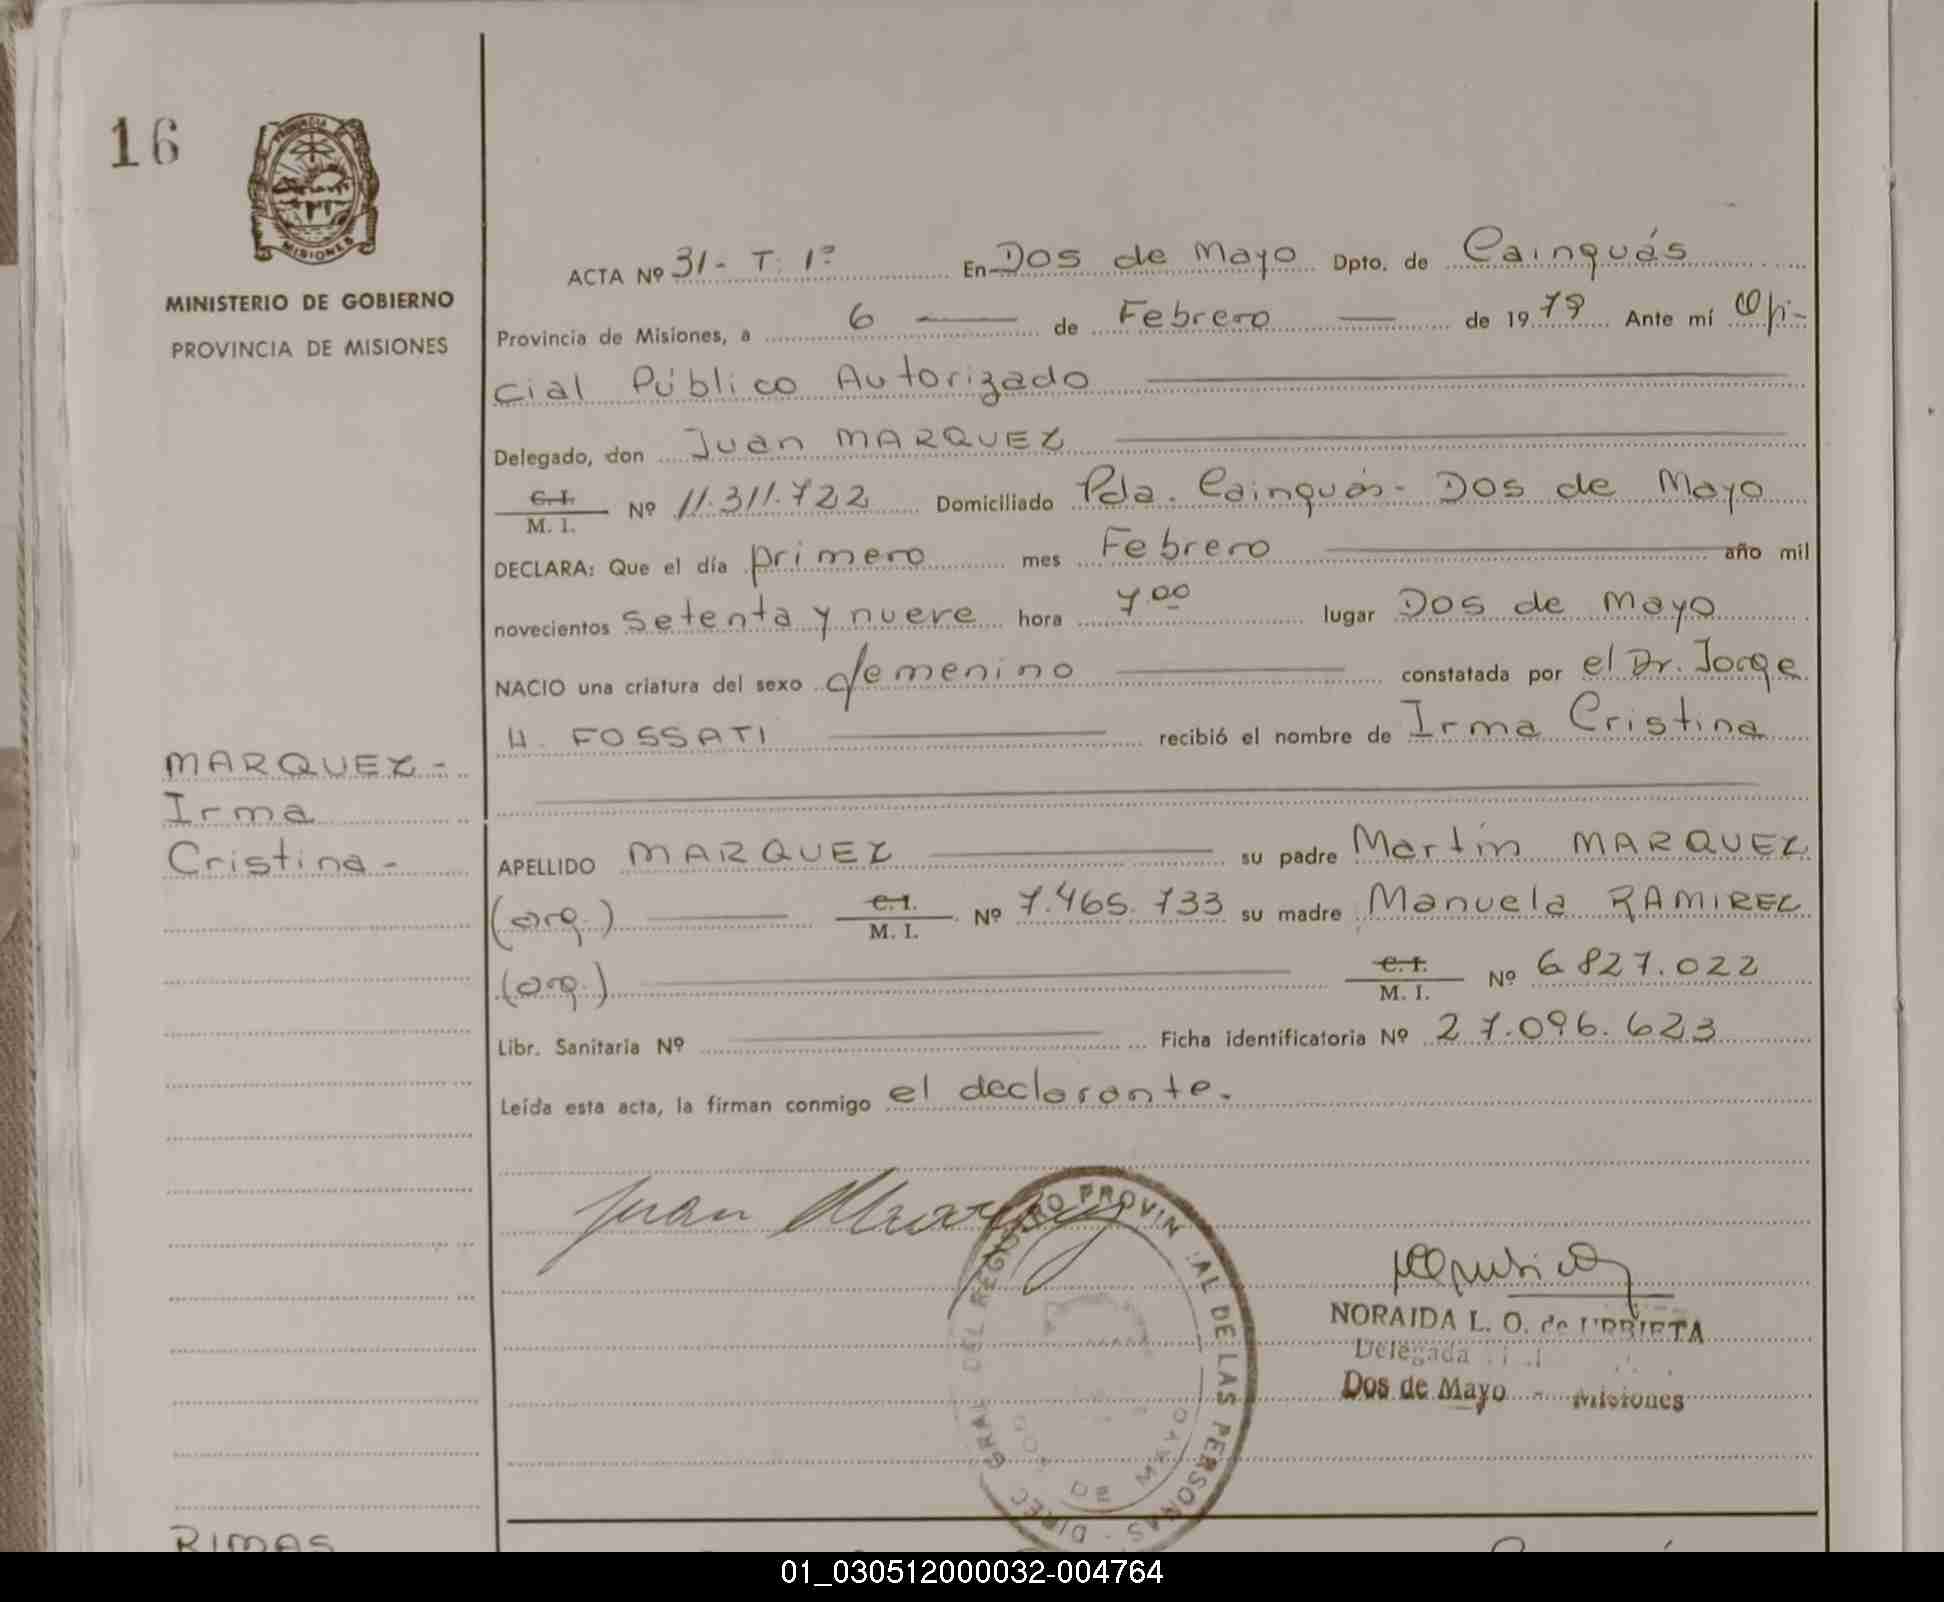 16
PROVINCIA
MISIONES
MINISTERIO DE GOBIERNO
PROVINCIA DE MISIONES
MARQUEZ-
Irma
Cristina-
RIMAS
ACTA Nº 31- T. 1º En Dos de Mayo Dpto. de Cainguás
Provincia de Misiones, a 6 de Febrero de 1979 Ante mí Ofi-
cial Público Autorizado
Delegado, don Juan MARQUEZ
C. I. / M. I. Nº 11.311.722 Domiciliado Pda. Cainguás- Dos de Mayo
DECLARA: Que el día primero mes Febrero año mil
novecientos setenta y nueve hora 7.00 lugar Dos de Mayo
NACIO una criatura del sexo femenino constatada por el Dr. Jorge
H. FOSSATI recibió el nombre de Irma Cristina
APELLIDO MARQUEZ su padre Martín MARQUEZ
(arg.) C. I. / M. I. Nº 7.465.733 su madre Manuela RAMIREZ
(arg.) C. I. / M. I. Nº 6.827.022
Libr. Sanitaria Nº Ficha identificatoria Nº 27.096.623
Leída esta acta, la firman conmigo el declarante.
Juan Marquez
DIREC GRAL DEL REGISTRO PROVINCIAL DE LAS PERSONAS -
DOS DE MAYO
NORAIDA L. O. de URRIETA
Delegada
Dos de Mayo - Misiones
01_030512000032-004764